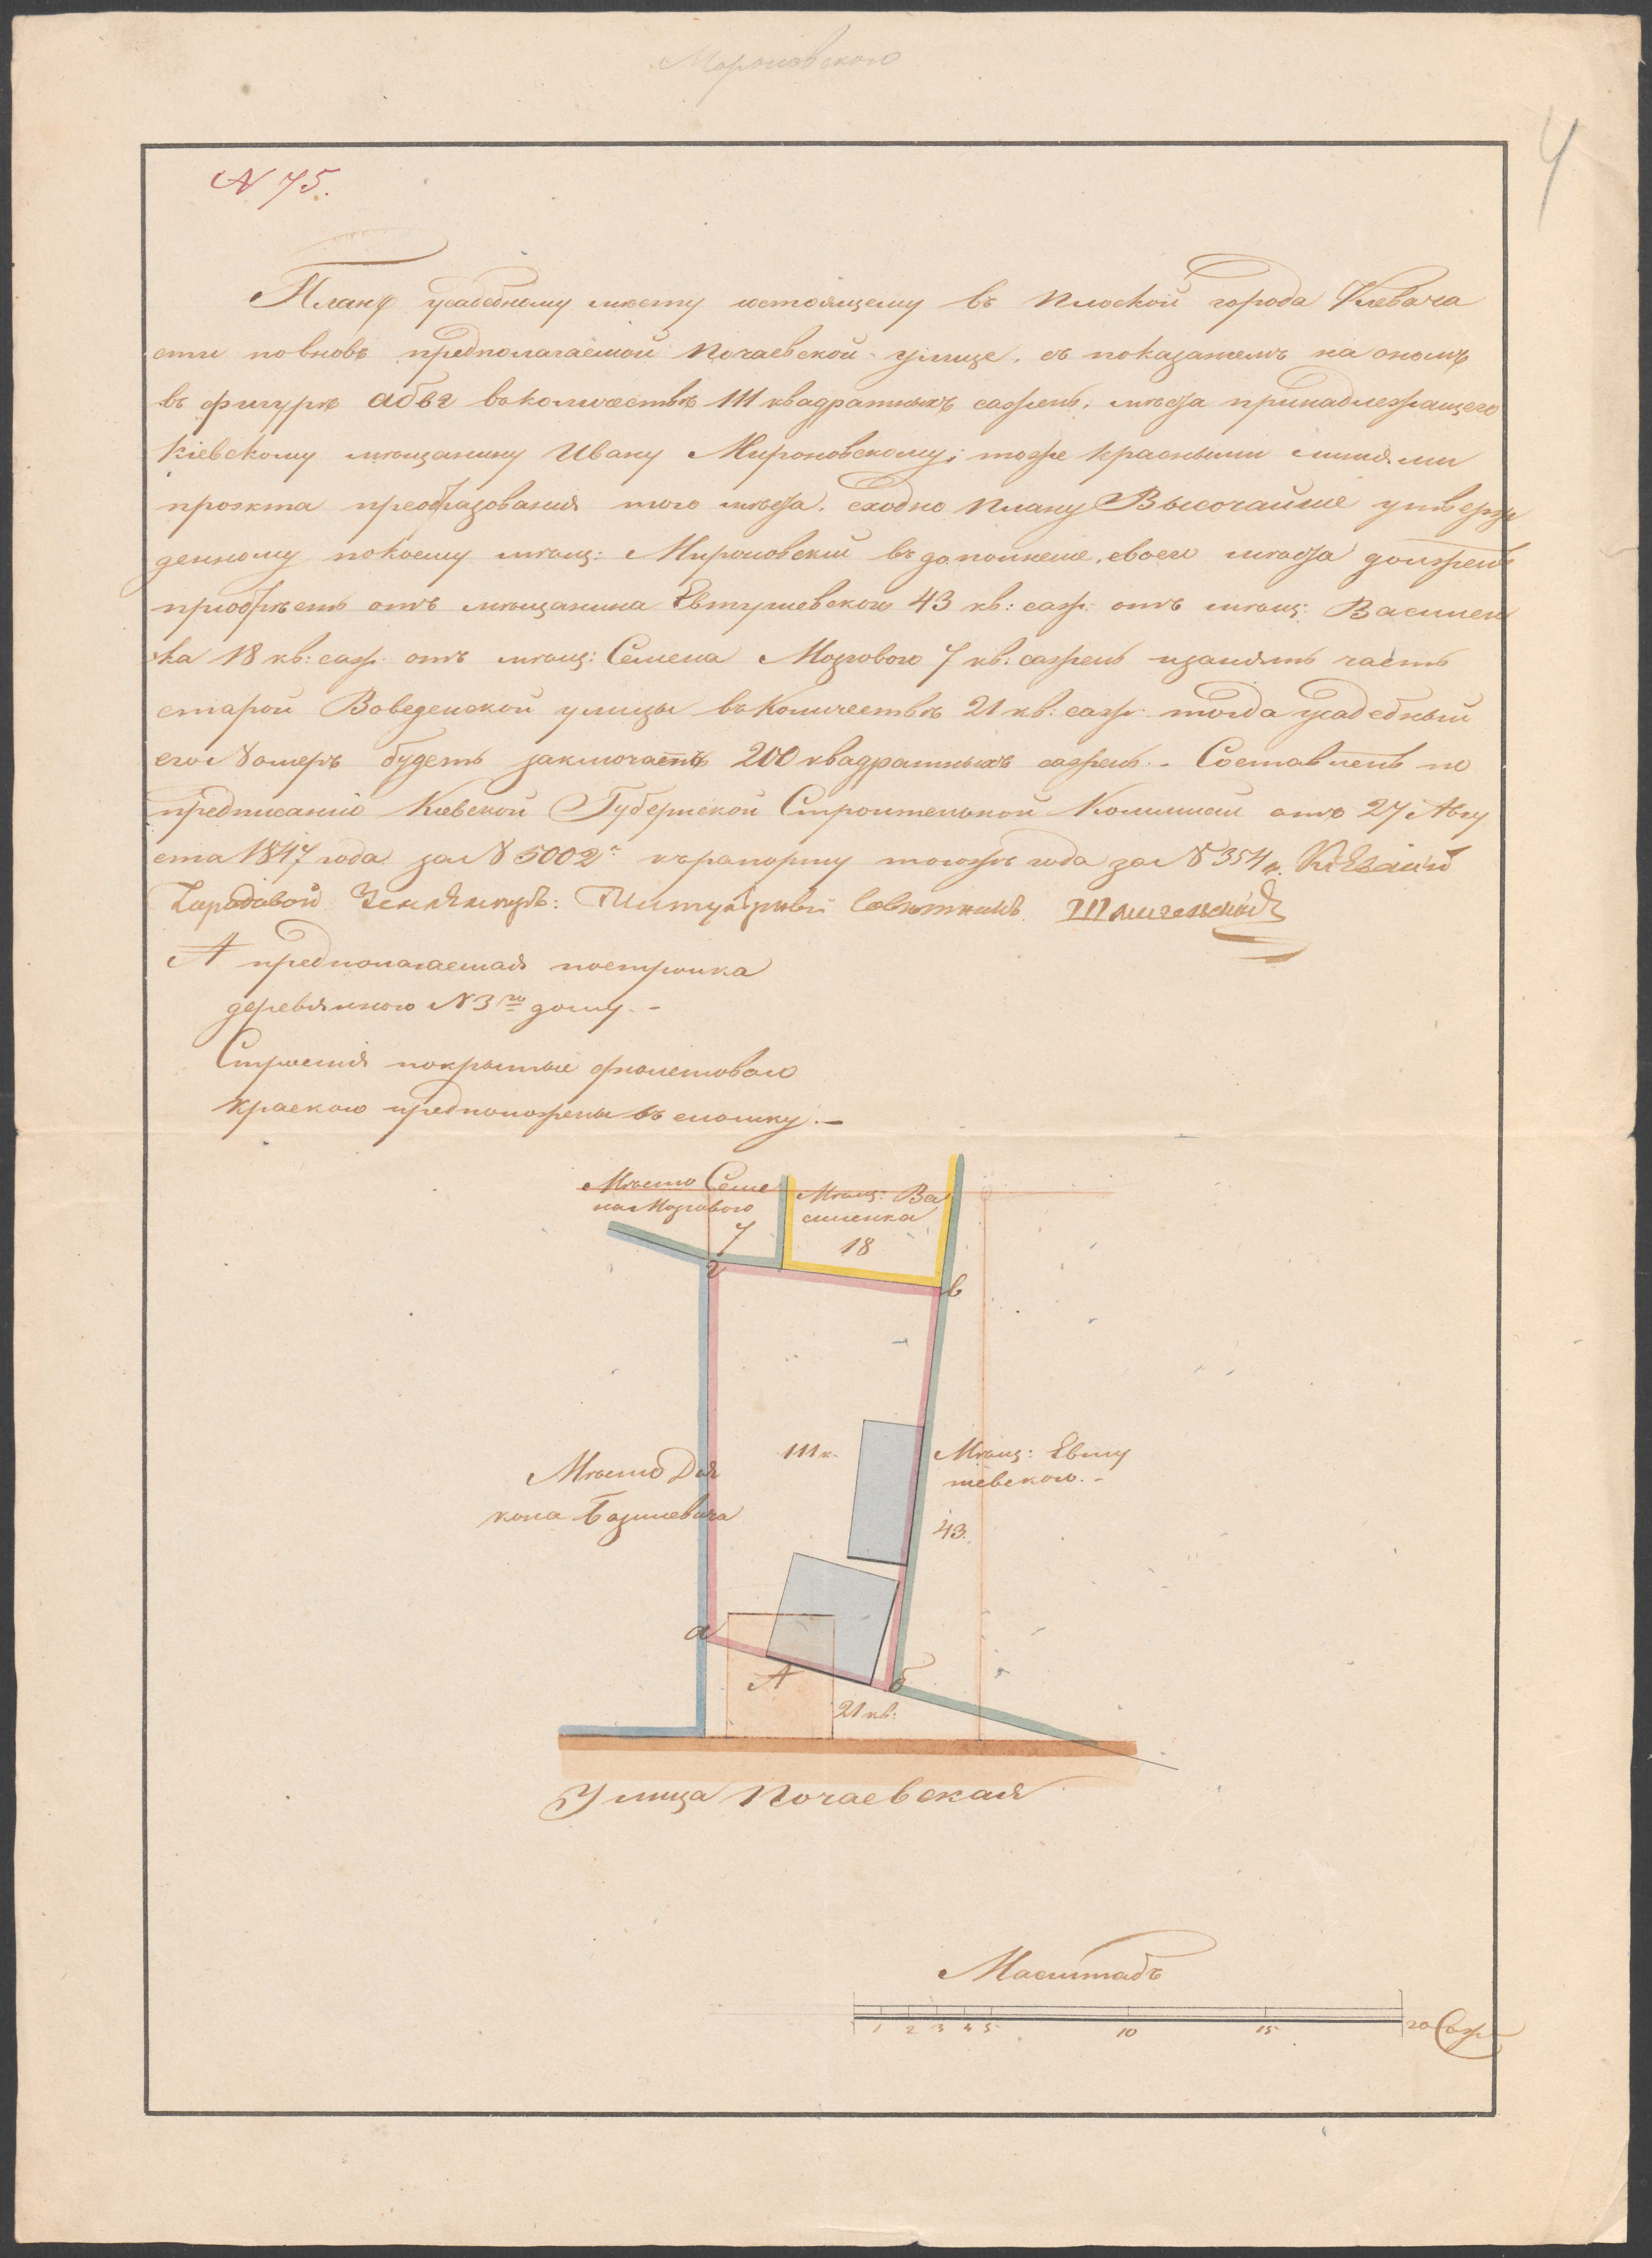 Мироновского
4
N 75.
Планъ усадебному мѣсту состоящему въ плоской города Кіева ча
сти повновь предполагаемой Почаевской улице, съ показаніемъ на ономъ
въ фигурѣ абвг въ количествѣ 111 квадратныхъ сажень, мѣста принадлежащего
Кіевскому мѣщанину Ивану Мироновскому; тоже красными линіями
проэкта преобразованія того мѣста, сходно плану Высочайше утверж
денному покоему мѣщ: Мироновскій въ дополненіе, своего мѣста долженъ
приобрѣсть отъ мѣщанина Евтушевского 43 кв: саж: отъ мѣщ: Василен
ка 18 кв: саж: отъ мѣщ: Семена Мозгового 7 кв: сажень изанять часть
старой Воведенской улицы въ Количествѣ 21 кв: саж: тогда усадебный
его Номеръ будетъ заключать 200 квадратныхъ сажень. - Составленъ по
предписанію Кіевской Губернской Строительной Коммисіи отъ 27 Авгу
ста 1847 года за N 5002 къ рапорту тогожъ года за N 354. Кіевскій
Городовой Землемеръ: Титулярный Советникъ
А предполагаемая постройка
деревянного N 3го дому. -
Строенія покрытые фіолетовою
краскою предположены въ сломку. -
Мѣсто Семе
на Мозгового
7
Мѣщ: Ва
силенка
18
г
в
111 к.
Мѣщ: Евту
шевского. -
43.
Мѣсто Дья
кона Базилевича
а
А
б
21 кв:
Улица Почаевская
Масштабъ
1 2 3 4 5 10 15 20 Саж